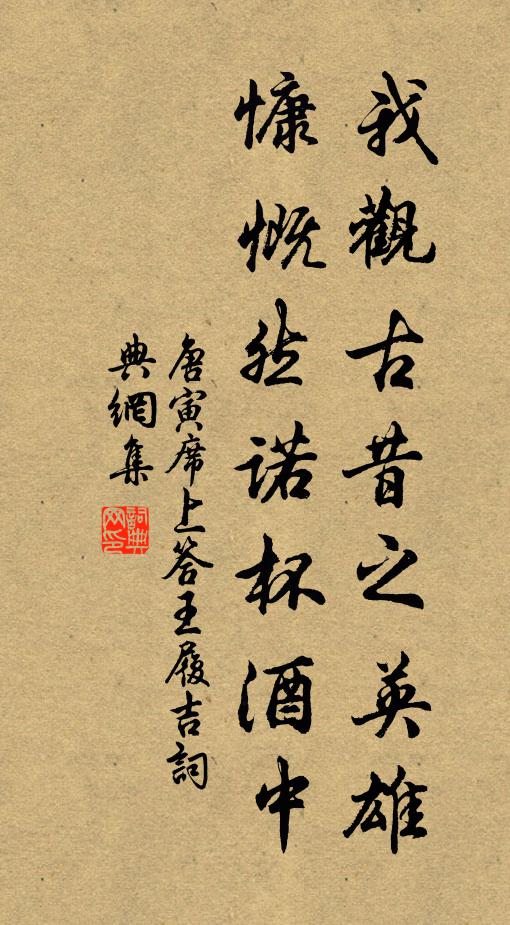 我觀古昔之英雄
慷慨然諾杯酒中
唐寅席上答王履吉詞
典網集
詞典
网印